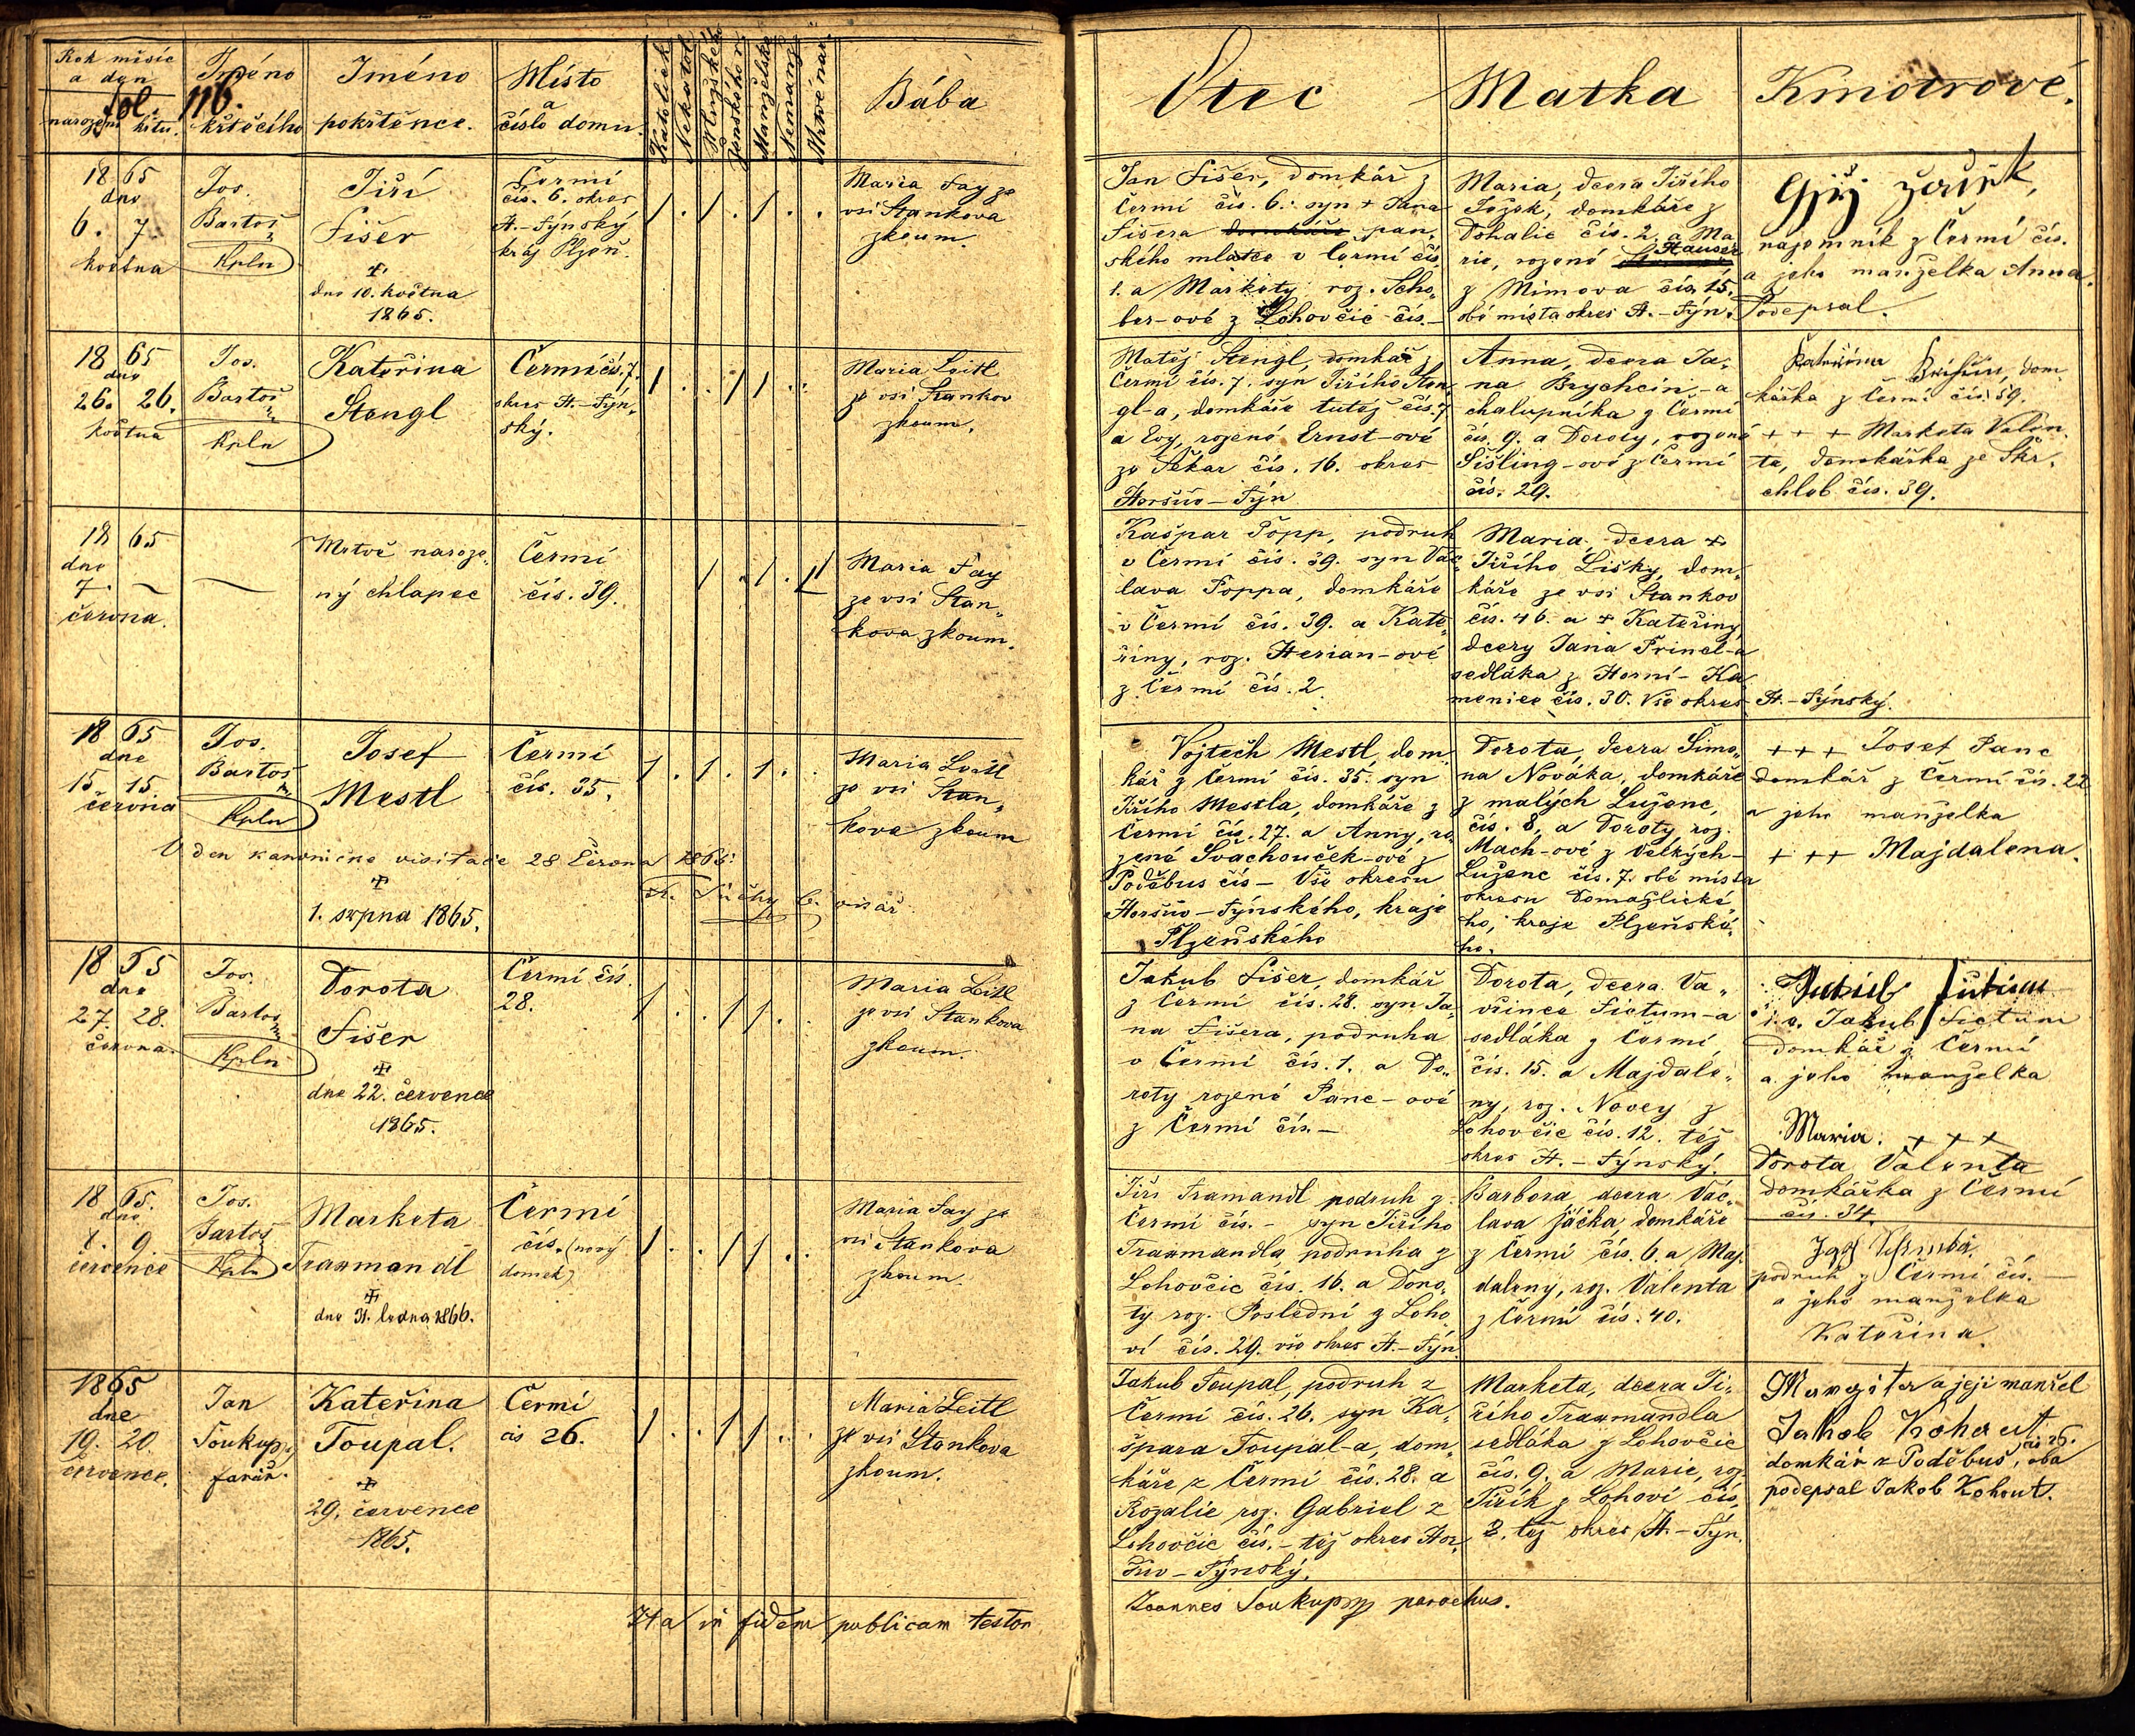 Rok měsíc
a den
narození křtu.
fol. 116.
Iméno
křtěcího
Iméno
pokřtěnce.
Místo
a
číslo domu.
Katolick
Nekatol
Mužského
Ženského
Manželské
Nemanž
Mrtvé nar.
Bába
Otec
Matka
Kmotrové.
1865
dne
6. 7
května
Jos.
Bartoš
Kpln
Jiří
Fišer
dne 10. května
1865.
Čermí
čís. 6. okres
H.-Týnský
kraj Plzeň.
Maria Fay ze
vsi Stankova
zkoum.
Jan Fišer, domkář z
Čermí čís. 6. syn + Jana
Fišera domkáře pan„
ského mlatce v Čermí čís
1. a Markety roz. Scho„
ber-ové z Lohovčic čís. –
Maria, dcera Jiřího
domkáře z
Dohalic čís. 2. a Ma
rie, rozené Hauser
z Mimova čís. 15.
obě místa okres H.-Týn.
nájemník z Čermí čís.
a jeho manželka Anna.
Podepsal.
1865
dne
26. 26.
května
Jos.
Bartoš
Kpln
Kateřina
Stengl
Čermí čís. 7.
okres H.-Týn„
ský.
Maria Leitl
ze vsi Stankov
zkoum.
Matěj Stengl, domkář z
Čermí čís. 7. syn Jiřího Sten„
gl-a, domkáře tutéž čís. 7
a Evy, rozené Ernst-ové
ze Sekar čís. 16. okres
Horšův-Týn
Anna, dcera Ja„
na Brychcín-a
chalupníka z Čermí
čís. 9. a Doroty, rozené
Šišling-ové z Čermí
čís. 29.
Kateřina dom„
kářka z Čermí čís. 59.
+ + + Marketa Valen„
ta, domkářka ze Skr„
chleb čís. 39.
1865
dne
7. –
června.
Mrtvě naroze„
ný chlapec
Čermí
čís. 39.
Maria Fay
ze vsi Stan„
kova zkoum.
Kašpar Popp, podruh
v Čermí čís. 39. syn Vác
lava Poppa, domkáře
v Čermí čís. 39. a Kate„
řiny, roz. Herian-ové
z Čermí čís. 2.
Maria, dcera +
Jiřího Lišky, dom„
káře ze vsi Stankov
čís. 46. a + Kateřiny
dcery Jana Princl-a
sedláka z Horní-Ka
menice čís. 30. Vše okres H.-Týnský.
1865
dne
15. 15.
června
Jos.
Bartoš
Kpln
Josef
Mestl
Čermí
čís. 35.
Maria Leitl
ze vsi Stan„
kova zkoum
V den kanonické visitace 28 Června 1865:
vikář
1. srpna 1865.
Vojtěch Mestl, dom„
kář z Čermí čís. 35. syn
Jiřího Mestla, domkáře z
Čermí čís. 27. a Anny, ro„
zené Svachouček-ové z
Poděbus čís – Vše okresu
Horšův-Týnského, kraje
Plzeňského
Dorota, dcera Šimo„
na Nováka, domkáře
z malých Luženc,
čís. 8, a Doroty roz.
Mach-ové z Velkých-
Luženc čís. 7. obě místa
okresu Domažlické
ho, kraje Plzeňské„
ho.
+++ Josef Panc
domkář z Čermí čís. 22
a jeho manželka
+ ++ Majdalena.
1865
dne
27. 28.
června.
Jos.
Bartoš
Kpln
Dorota
Fišer
dne 22. července
1865.
Čermí čís.
28.
Maria Leitl
ze vsi Stankova
zkoum.
Jakub Fišer, domkář
z Čermí čís. 28. syn Ja„
na Fišera, podruha
v Čermí čís. 1. a Do„
roty rozené Panc-ové
z Čermí čís. –
Dorota, dcera Va„
vřince Fictum-a
sedláka z Čermí
čís. 15. a Majdalé„
ny, roz. Novey z
Lohovčic čís. 12. též
okres H.-Týnský.
i. e. Jakub Fictum
domkář z Čermí
a jeho manželka
Maria. + + +
Dorota Valenta
domkářka z Čermí
čís. 34.
1865.
dne
8. 9
července
Jos.
Bartoš
Kpln
Marketa
Traxmandl
dne 31. ledna 1866.
Čermí
čís. (nový
domek)
Maria Fay ze
vsi Stankova
zkoum.
Jiří Traxmandl podruh z
Čermí čís. – syn Jiřího
Traxmandla, podruha z
Lohovčic čís. 16. a Doro„
ty roz. Poslední z Loho„
ví čís. 29. vše okres H.-Týn
Barbora, dcera Vác„
lava Jáčka, domkáře
z Čermí čís. 6. a Maj„
daleny, roz. Valenta
z Čermí čís. 40.
podruh z Čermí čís. –
a jeho manželka
Kateřina.
1865
dne
19. 20.
července.
Jan
Soukup
farář.
Kateřina
Toupal.
29. července
1865.
Čermí
čís 26.
Maria Leitl
ze vsi Stankova
zkoum.
Jakub Toupal, podruh z
Čermí čís. 26. syn Ka„
špara Toupal-a, dom„
káře z Čermí čís. 28. a
Rozalie roz. Gabriel z
Lohovčic čís. – též okres Hor„
šův-Týnský.
Marketa, dcera Ji„
řího Traxmandla
sedláka z Lohovčic
čís. 9. a Marie, roz
Jiřík z Lohoví čís.
3. též okres H.-Týn.
Margita a její manžel
Jakob Kohout
domkár z Poděbus, čís 26. oba
podepsal Jakob Kohout.
Ita in fidem publicam testor
Joannes Soukup parochus.